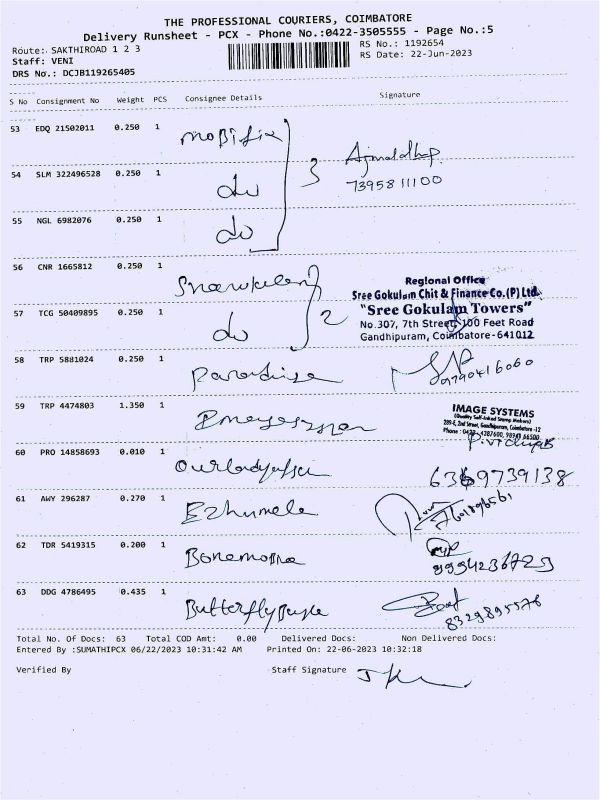 THE PROFESSIONAL COURIERS, COIMBATORE
Delivery Runsheet - PCX - Phone No.:0422-3505555 - Page No.:5
Route: SAKTHIROAD 1 2 3
RS No.: 1192654
Staff: VENI
RS Date: 22-Jun-2023
DRS No.: DCJB119265405
S No Consignment No Weight PCS Consignee Details Signature
53 EDQ 21502011 0.250 1 mobifix
3
7395811100
54 SLM 322496528 0.250 1 do
55 NGL 6982076 0.250 1 do
56 CNR 1665812 0.250 1
Regional Office
Sree Gokulam Chit & Finance Co.(P) Ltd.
2
"Sree Gokulam Towers"
57 TCG 50409895 0.250 1 do
No.307, 7th Street, 100 Feet Road
Gandhipuram, Coimbatore-641012
58 TRP 5881024 0.250 1 Paradise
9790416060
59 TRP 4474803 1.350 1
IMAGE SYSTEMS
(Quality Self-Inked Stamp Makers)
289-E, 2nd Street, Gandhipuram, Coimbatore -12
60 PRO 14858693 0.010 1
6369739138
61 AWY 296287 0.270 1 Ezhumela
62 TDR 5419315 0.200 1
63 DDG 4786495 0.435 1
8329895576
Total No. Of Docs: 63 Total COD Amt: 0.00 Delivered Docs: Non Delivered Docs:
Entered By :SUMATHIPCX 06/22/2023 10:31:42 AM Printed On: 22-06-2023 10:32:18
Verified By Staff Signature